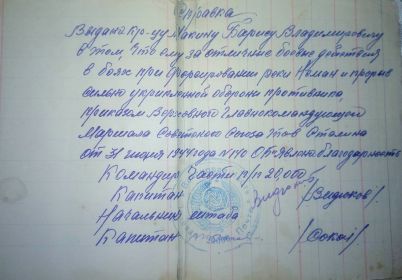 Справка
Выдана кр-цу Макину Борису Владимировичу
в том, что ему за отличные боевые действия
в боях при форсировании реки Неман и прорыв
сильно укрепленной обороны противника,
приказом Верховного Главнокомандующего
Маршала Советского Союза тов Сталина
от 31 июля 1944 года № 140 Объявлена благодарность
Командир части п/п 20,000
Капитан /Видюков/
Начальник штаба
Капитан /Сокол/